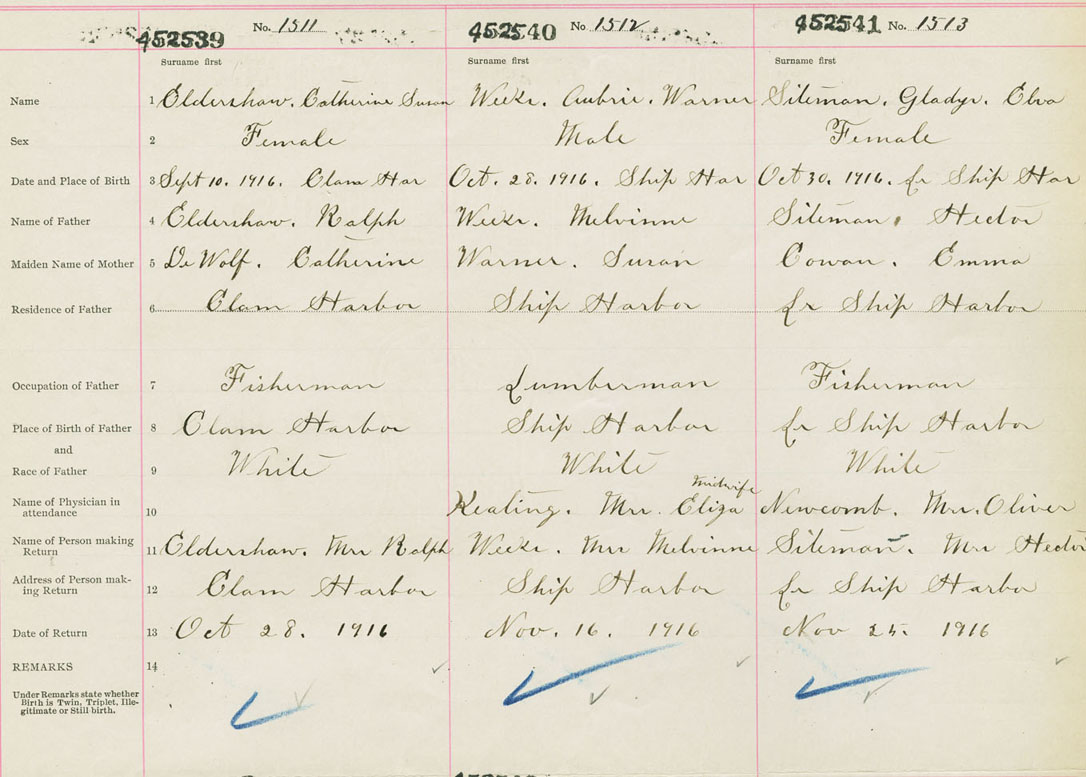 452539 No. 1511 452540 No 1512 452541 No. 1513
Surname first Surname first Surname first
Name 1 Eldershaw. Catherine Susan Weeks. Aubrie. Warner Siteman. Gladys. Elva
Sex 2 Female Male Female
Date and Place of Birth 3 Sept 10. 1916. Clam Har Oct. 28. 1916. Ship Har Oct 30. 1916. Lr Ship Har
Name of Father 4 Eldershaw. Ralph Weeks. Melvinne Siteman. Hector
Maiden Name of Mother 5 DeWolf. Catherine Warner. Susan Cowan. Emma
Residence of Father 6 Clam Harbor Ship Harbor Lr Ship Harbor
Occupation of Father 7 Fisherman Lumberman Fisherman
Place of Birth of Father 8 Clam Harbor Ship Harbor Lr Ship Harbor
and
Race of Father 9 White White White
midwife
Name of Physician in
attendance 10 Keating. Mrs. Eliza Newcomb. Mrs. Oliver
Name of Person making
Return 11 Eldershaw. Mrs Ralph Weeks. Mrs Melvinne Siteman. Mrs Hector
Address of Person mak-
ing Return 12 Clam Harbor Ship Harbor Lr Ship Harbor
Date of Return 13 Oct 28. 1916 Nov. 16. 1916 Nov 25. 1916
REMARKS 14
Under Remarks state whether
Birth is Twin, Triplet, Ille-
gitimate or Still birth.